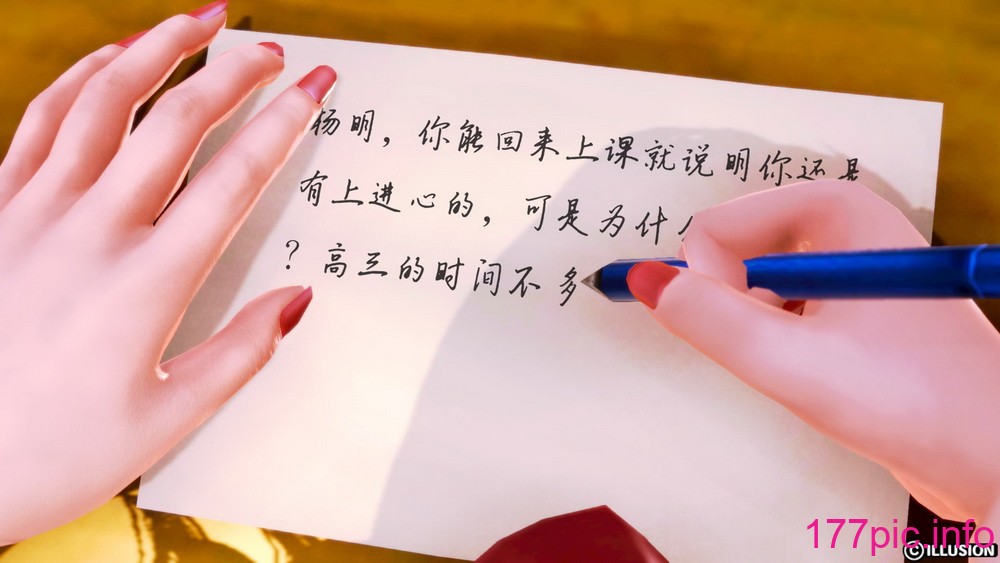 杨明，你能回来上课就说明你还是
有上进心的，可是为什
？高三的时间不多
177pic.info
©ILLUSION